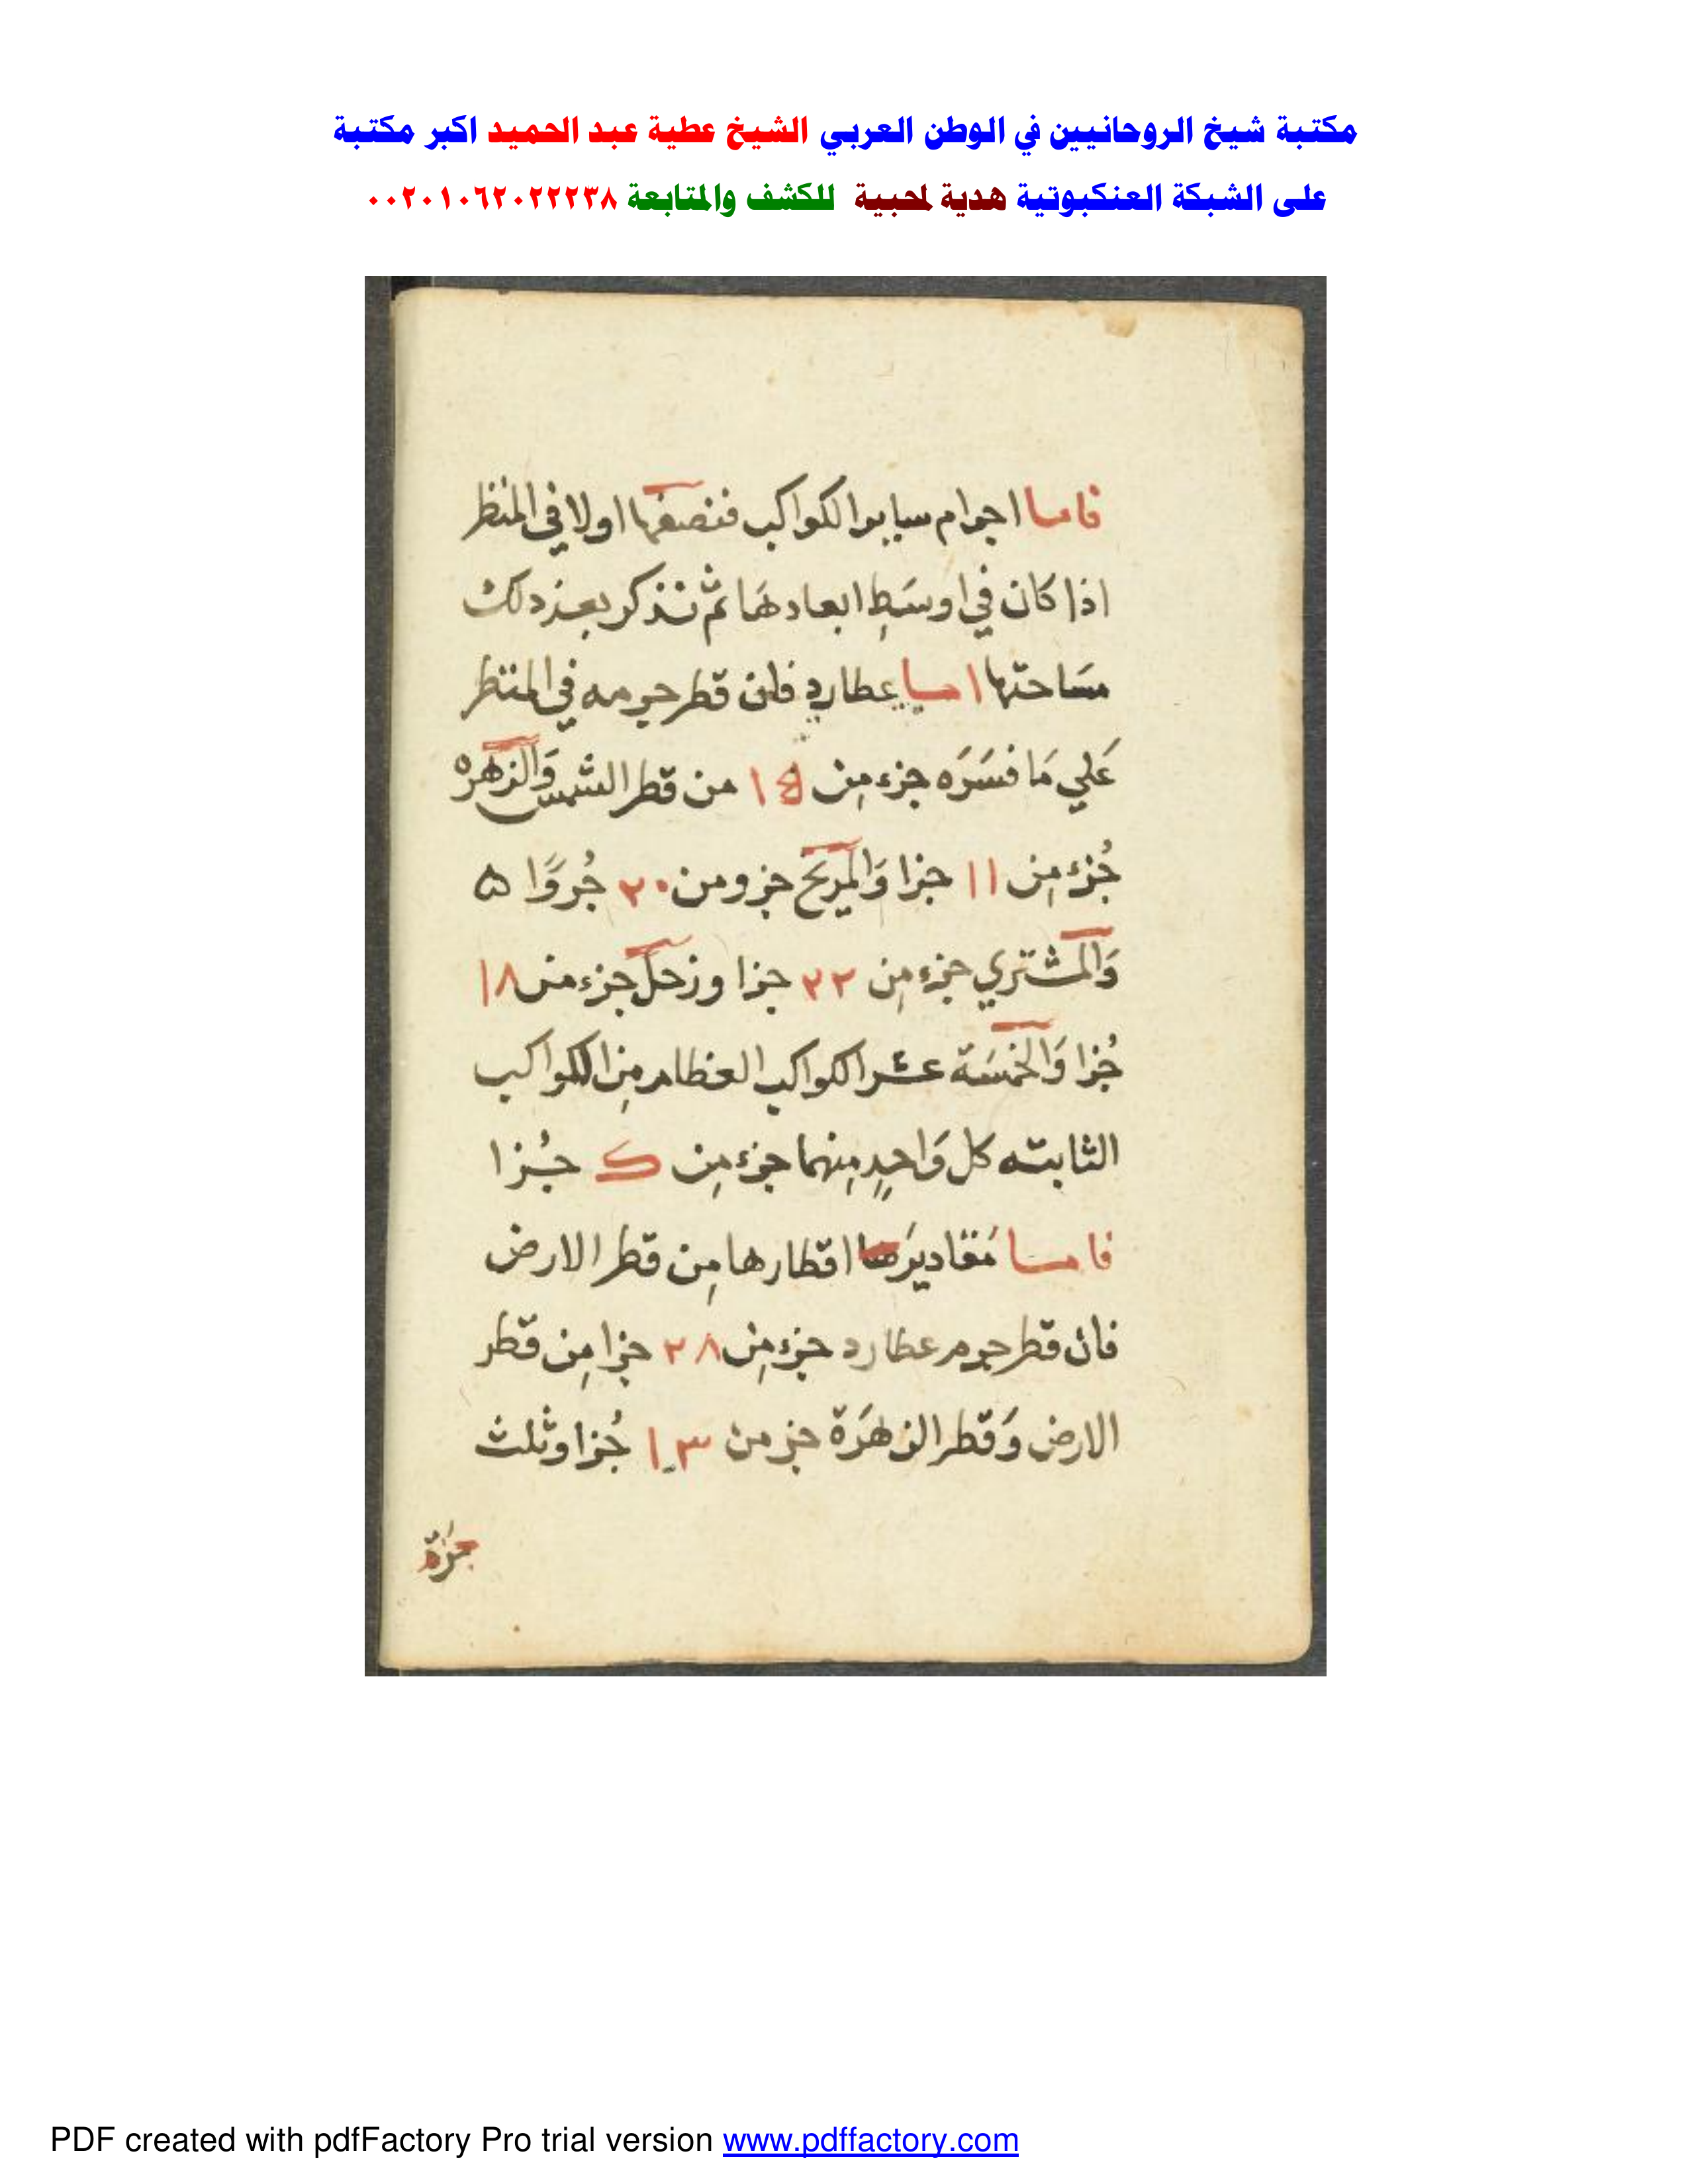 مكتبة شيخ الروحانيين في الوطن العربي الشيخ عطية عبد الحميد اكبر مكتبة
على الشبكة العنكبوتية هدية لمحبية للكشف والمتابعة ٠٠٢٠١٠٦٢٠٢٢٢٣٨
فاما اجرام ساير الكواكب فنصفها اولا في المنظر
اذا كان في اوسَطِ ابعادهَا ثم نذكر بعد ذلك
مسَاحتها اما عطارد فان قطر جرمه في المنظر
عَلي مَا فسَرَه جزء مِن ١٥ من قطر الشمس وَالزهره
جُزء مِن ١١ جزا وَالمريخ جزو من ٢٠ جُروًا ٥
وَالمشتري جزء مِن ٢٢ جزا وزحل جزء من ١٨
جُزا وَالخمسَة عشر الكواكب العظام مِن الكواكب
الثابته كل وَاحدٍ مِنهما جزء مِن ك جُزا
فاما مَقاديرَها اقطارها مِن قطر الارض
فان قطر جرم عطارد جزء مِن ٢٨ جزا مِن قطر
الارض وَقطر الزهرَة جز من ١٣ جُزا وثلث
PDF created with pdfFactory Pro trial version www.pdffactory.com